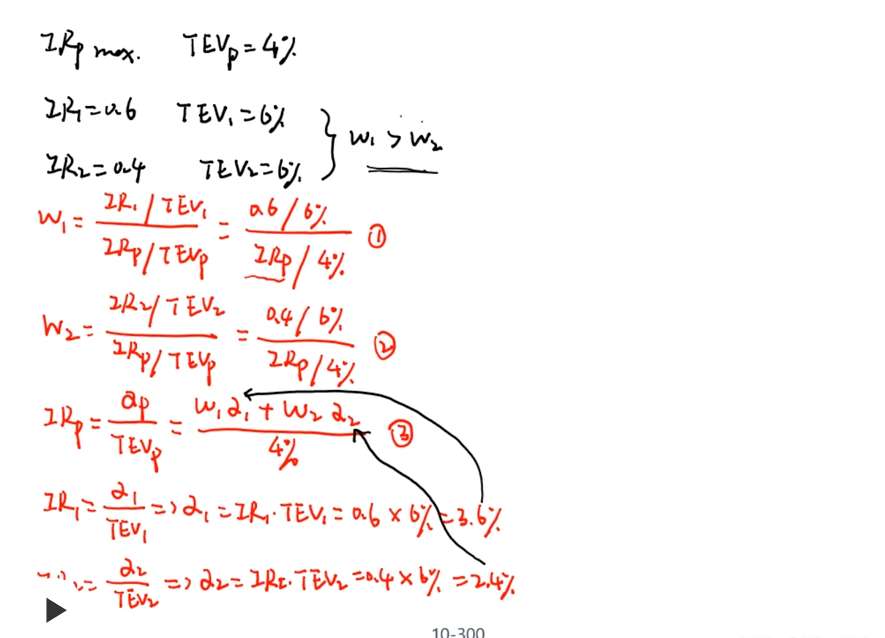 IRp max. TEVp=4%
IR1=0.6 TEV1=6%
IR2=0.4 TEV2=6% } w1 > w2
W1= (IR1/TEV1)/(IRp/TEVp) = (0.6/6%)/(IRp/4%) ①
W2= (IR2/TEV2)/(IRp/TEVp) = (0.4/6%)/(IRp/4%) ②
IRp= αp/TEVp = (W1α1+W2α2)/4% ③
IR1= α1/TEV1 => α1=IR1·TEV1=0.6×6%=3.6%
= α2/TEV2 => α2=IR2·TEV2=0.4×6%=2.4%
10-300